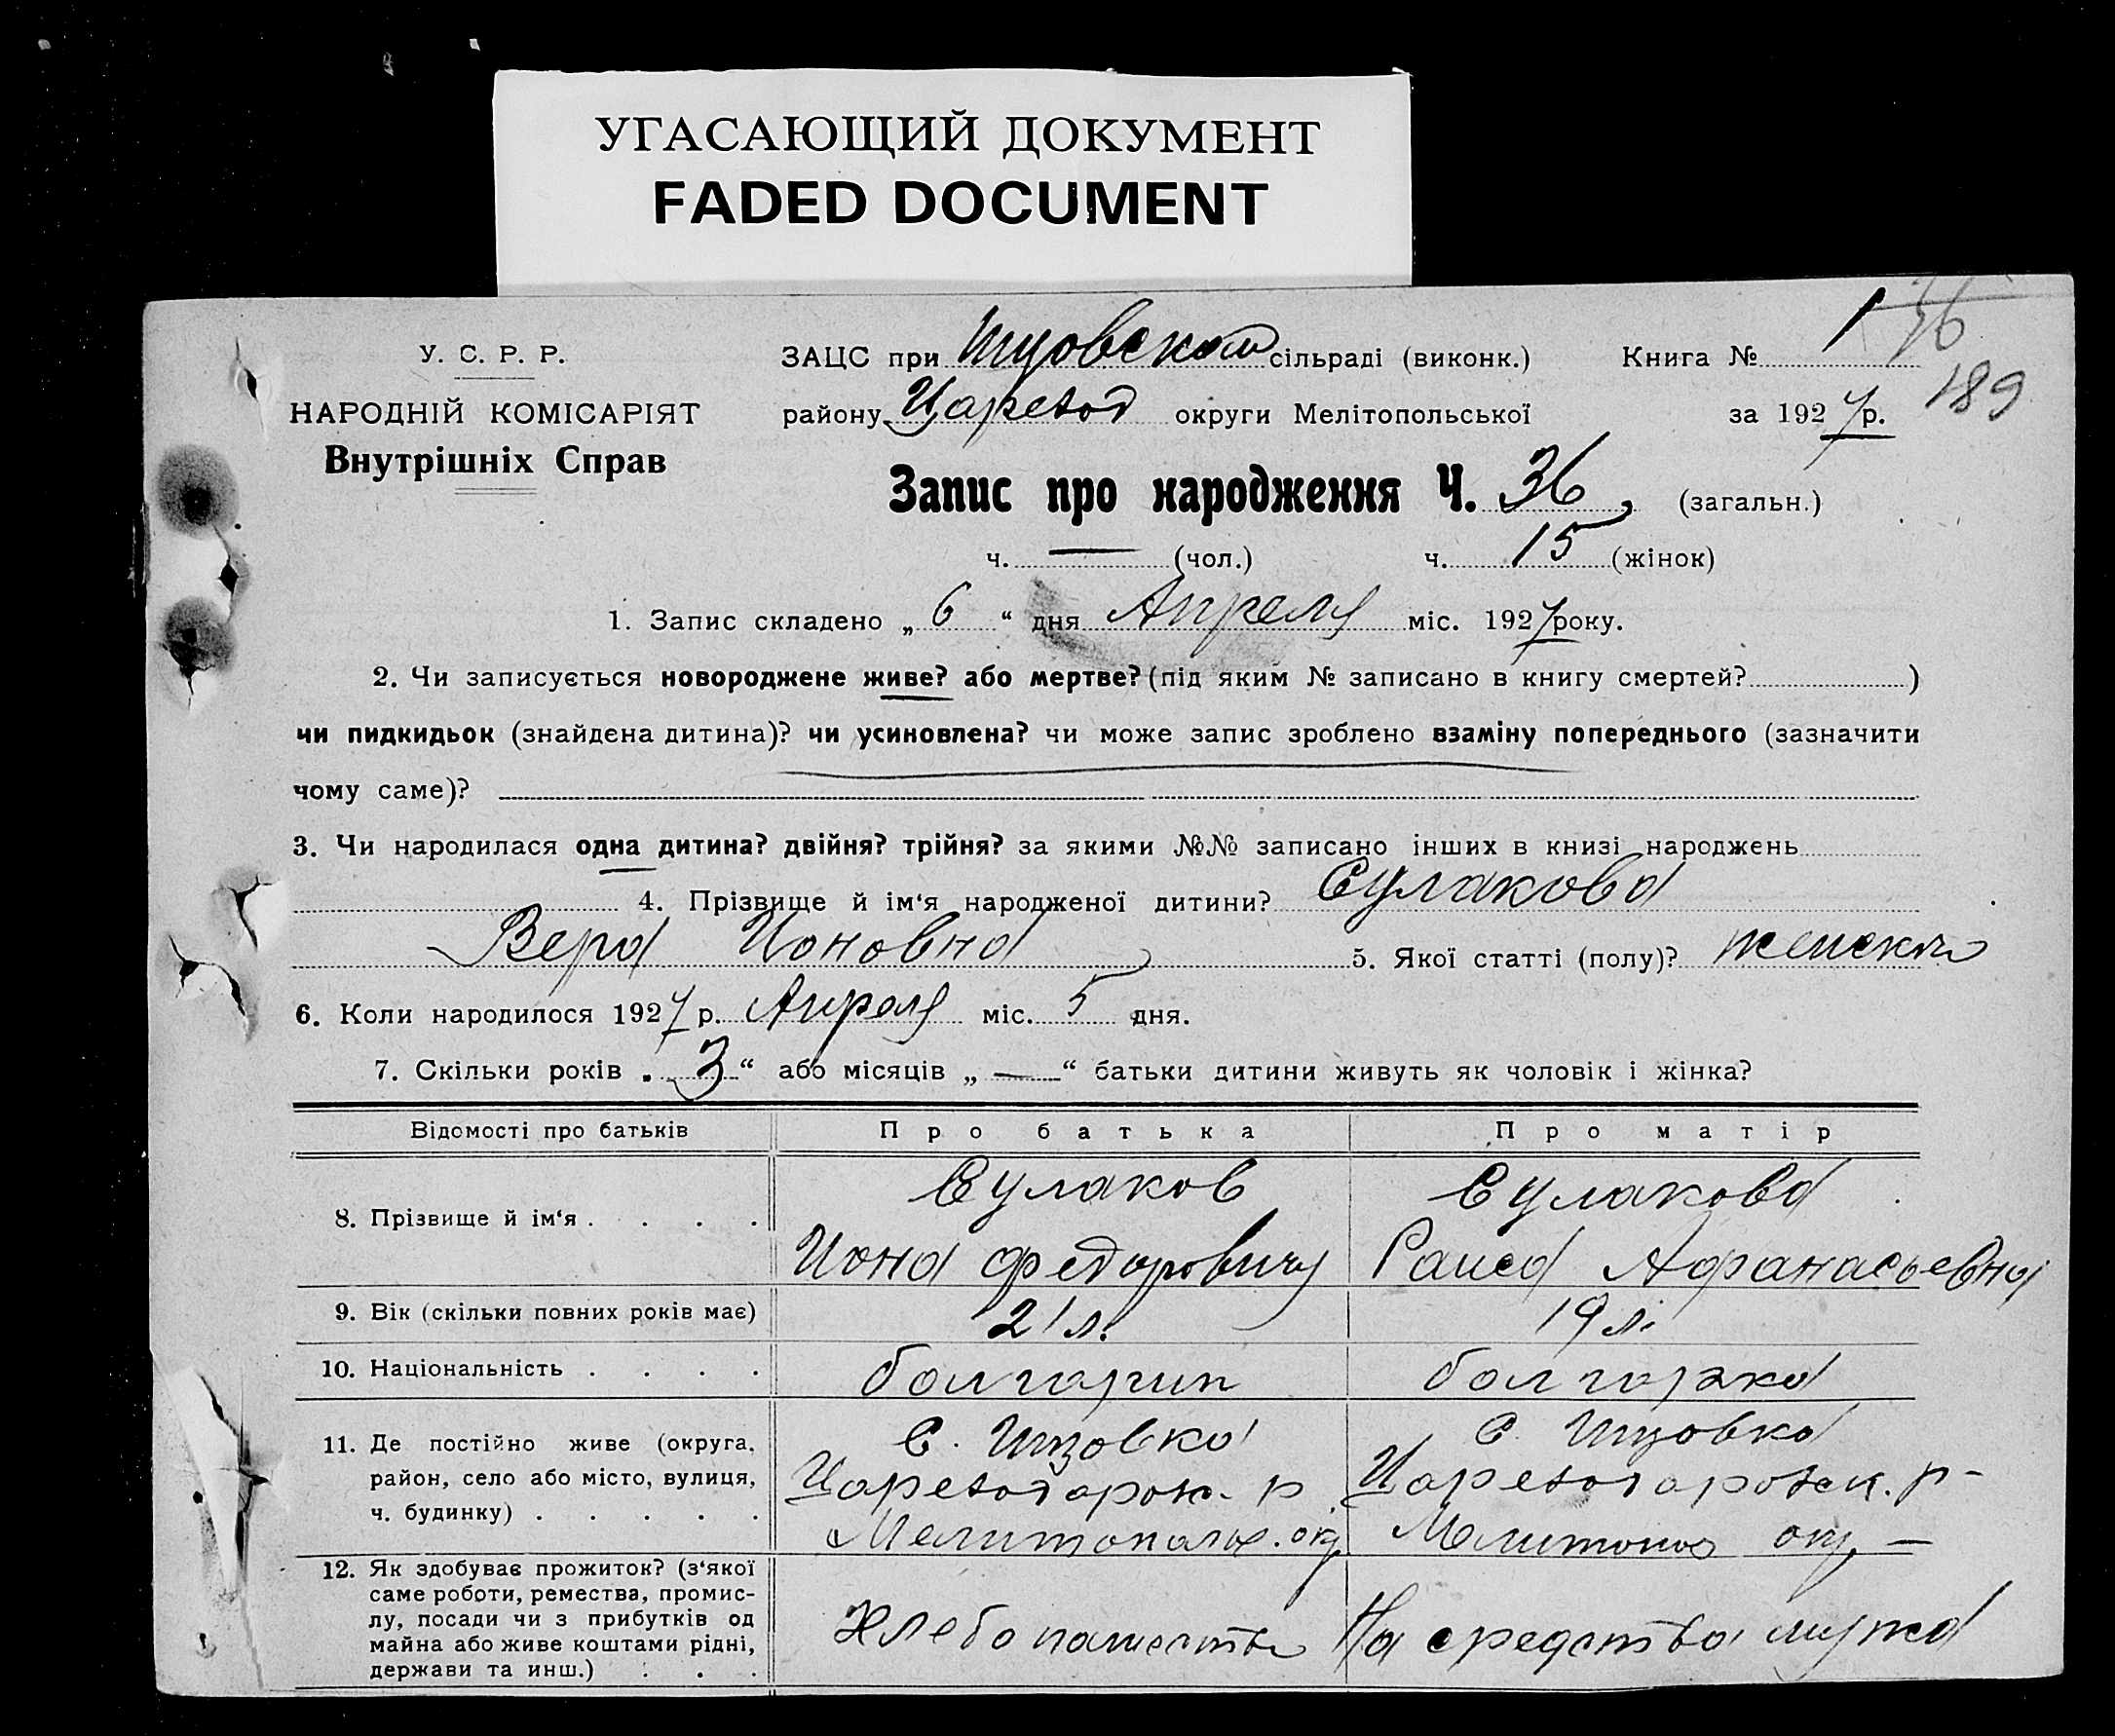 УГАСАЮЩИЙ ДОКУМЕНТ
FADED DOCUMENT
У. С. Р. Р.
НАРОДНІЙ КОМІСАРІЯТ
Внутрішніх Справ
ЗАЦС при сільраді (виконк.) Книга № 1 36
району Царевод округи Мелітопольської за 1927 р. 189
Запис про народження Ч. 36 (загальн.)
ч. — (чол.) ч. 15 (жінок)
1. Запис складено „ 6 “ дня Апреля міс. 1927 року.
2. Чи записується новороджене живе? або мертве? (під яким № записано в книгу смертей? )
чи пидкидьок (знайдена дитина)? чи усиновлена? чи може запис зроблено взаміну попереднього (зазначити
чому саме)?
3. Чи народилася одна дитина? двійня? трійня? за якими №№ записано інших в книзі народжень
4. Прізвище й ім‘я народженої дитини? Сулакова
Вера Ионовна 5. Якої статті (полу)? женский
6. Коли народилося 1927 р. Апреля міс. 5 дня.
7. Скільки років „ 3 “ або місяців „ — “ батьки дитини живуть як чоловік і жінка?
Відомості про батьків Про батька Про матір
8. Прізвище й ім‘я . . . . Сулаков Сулакова
Иона Федорович Раиса Афанасьевна
9. Вік (скільки повних років має) 21 л. 19 л.
10. Національність . . . . болгарин болгарка
11. Де постійно живе (округа, район, село або місто, вулиця, ч. будинку) . . . . .
С. С.
р. р-
Мелитопольс. окр. Мелитопол окр. —
12. Як здобуває прожиток? (з‘якої
саме роботи, ремества, промис-
лу, посади чи з прибутків од
майна або живе коштами рідні,
держави та инш.) . . .
Хлебопашество На средства мужа